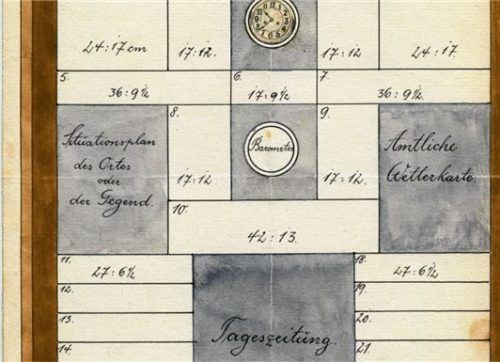 24:17 cm
17:12.
17:12
24:17.
5.
36:9½
6.
17:9½
7.
36:9½.
Situationsplan
des Ortes
oder
der Gegend.
8.
17:12
Barometer
9.
17:12.
Amtliche
Wetterkarte.
10.
42:13.
11.
27:6½
18.
27:6½
12.
19.
13.
20.
14
21.
Tageszeitung.